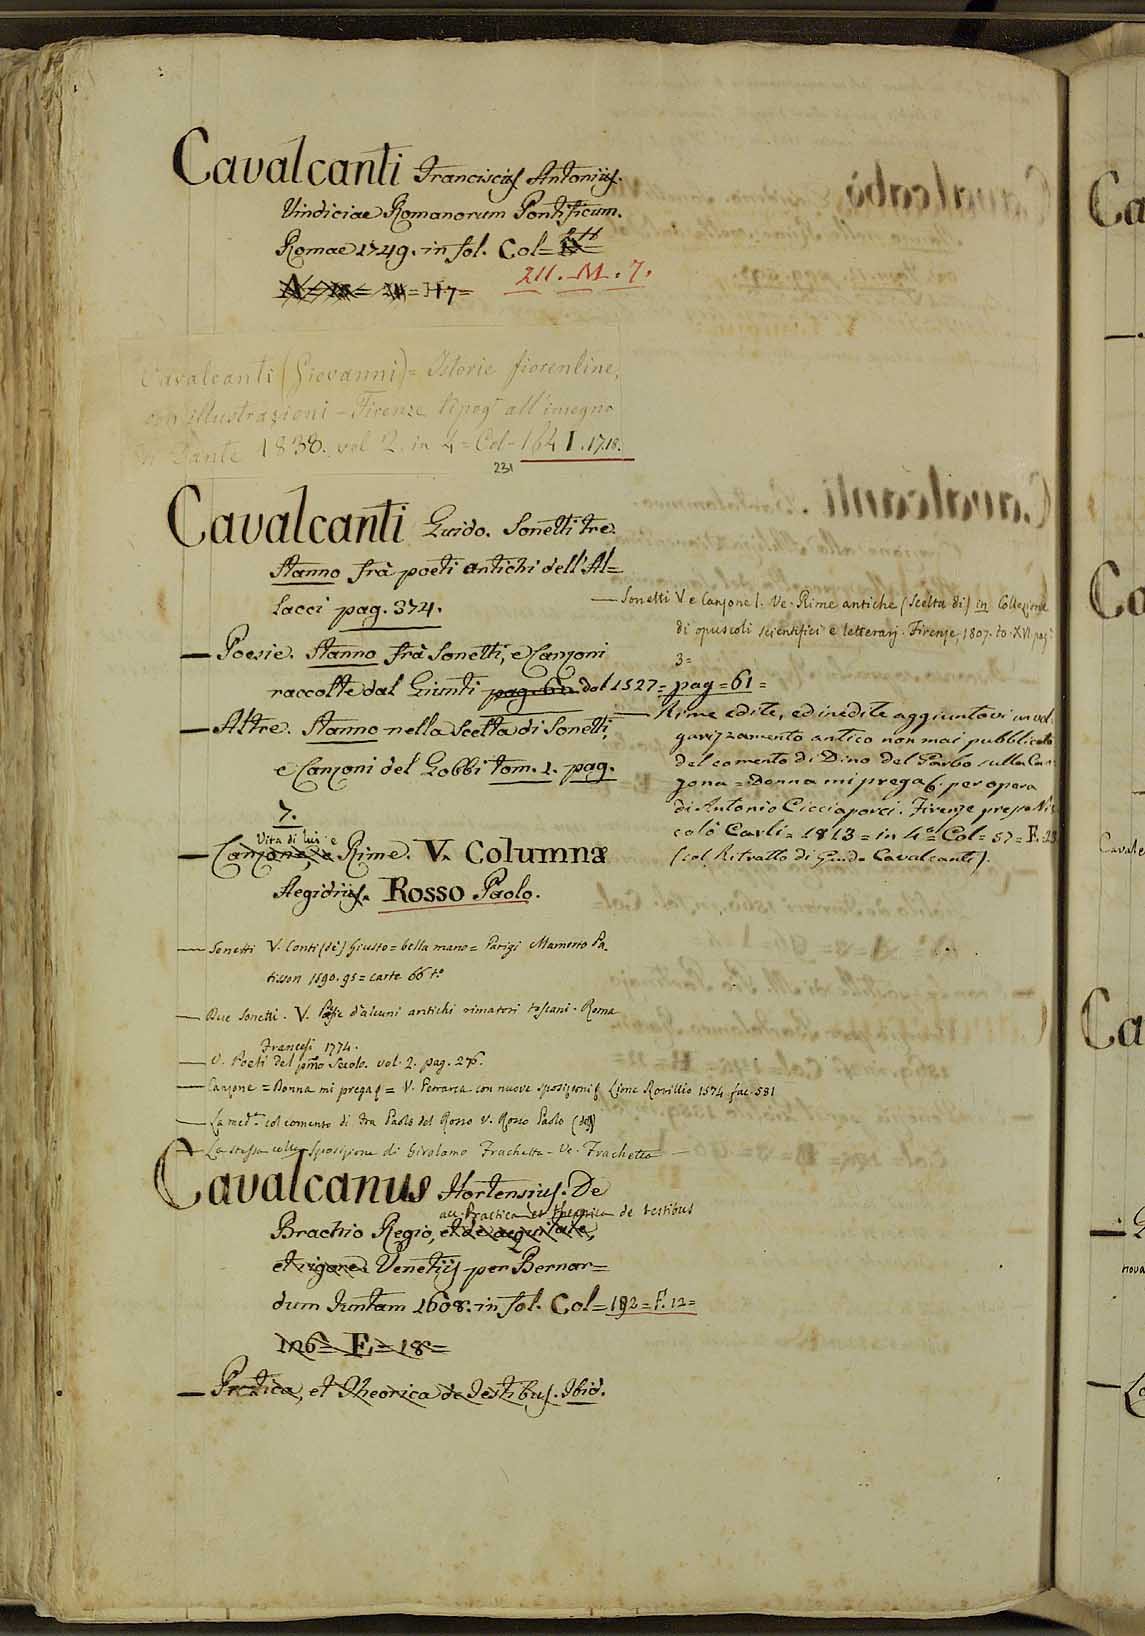 Cavalcanti Franciscus Antonius.
Vindiciae Romanorum Pontificum.
Romae 1749. in fol. Col=
211. M. 7.
= H7=
Cavalcanti (Giovanni)= Istorie fiorentine,
con illustrazioni - Firenze tipog. all'insegna
di Dante 1838. vol 2. in 4= Col= 164 I. 17.18.
231
Cavalcanti Guido. Sonetti tre.
Stanno frà poeti antichi dell'Al=
lacci pag. 374.
— Poesie. Stanno frà Sonetti, e Canzoni
raccolte dal Giunti pag. 61= dal 1527= pag=61=
— Altre. Stanno nella Scelta di Sonetti,
e Canzoni del Gobbi tom. 1. pag.
7.
Vita di lui e
— Canzone, e Rime. V. Columna
Aegidius. Rosso Paolo.
— Sonetti V. Conti (de') Giusto= bella mano= Parigi Mamerto Pa.
tisson 1590. 95= carte 66 to
— Due Sonetti. V. Poesie d'alcuni antichi rimatori toscani. Roma
Francesi 1774.
— V. Poeti del pmo Secolo. vol. 2. pag. 276.
— Canzone = Donna mi prega &= V. Petrarca con nuove sposizioni & Lione Rovillio 1574 fac. 581
— La med.a col comento di fra Paolo del Rosso V. Rosso Paolo (del)
— La stessa colla Sposizione di Girolamo Frachetta - Ve. Frachetta —
— Sonetti V e Canzone 1. Ve. Rime antiche (Scelta di) in Collezione
di opuscoli scientifici e letterarj. Firenze, 1807. to. XVI pag
3=
— Rime edite, ed inedite aggiuntovi un vol
garizzamento antico non mai pubblicato
del comento di Dino del Garbo sulla Can
zona= Donna mi prega &. per opera
di Antonio Cicciaporci. Firenze presso Ni
colò Carli= 1813= in 4o= Col= 57= F. 23
(col Ritratto di Guido Cavalcanti).
Cavalcanus Hortensius. De
acc. Practica et theorica de testibus
Brachio Regio, et de aequitate,
et rigore. Venetijs per Bernar=
dum Juntam 1608. in fol. Col= 192= F. 12=
126= F.= 18=
— Pratica, et Theorica de Testibus. Ibid.